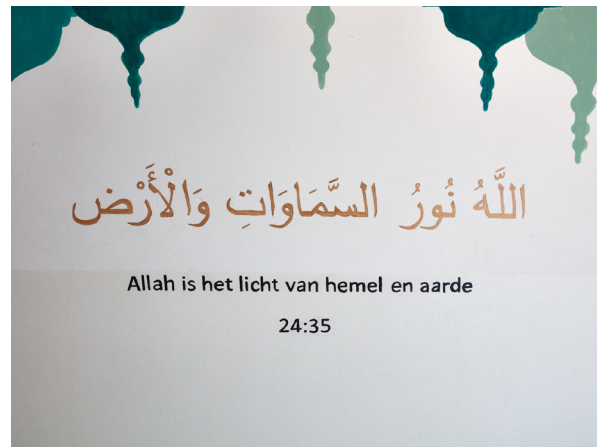 اللَّهُ نُورُ السَّمَاوَاتِ وَالْأَرْض
Allah is het licht van hemel en aarde
24:35